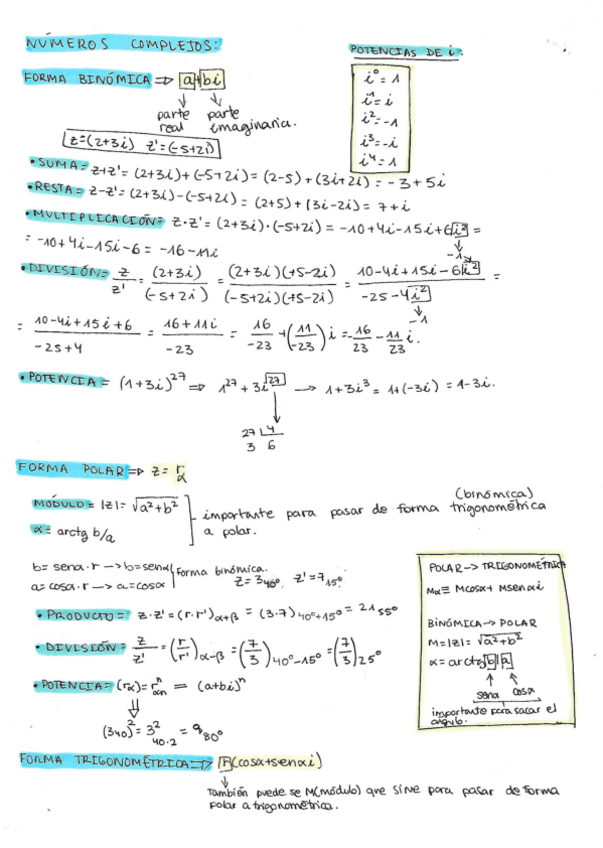 NÚMEROS COMPLEJOS:
POTENCIAS DE i:
i⁰ = 1
i¹ = i
i² = -1
i³ = -i
i⁴ = 1
FORMA BINÓMICA ⇒ a+bi
parte real
parte imaginaria.
z=(2+3i) z'=(-5+2i)
• SUMA= z+z' = (2+3i)+(-5+2i) = (2-5)+(3i+2i) = -3+5i
• RESTA= z-z' = (2+3i)-(-5+2i) = (2+5)+(3i-2i) = 7+i
• MULTIPLICACIÓN= z·z' = (2+3i)·(-5+2i) = -10+4i-15i+6i² =
-1
= -10+4i-15i-6 = -16-11i
• DIVISIÓN= z/z' = (2+3i)/(-5+2i) = (2+3i)(+5-2i)/(-5+2i)(+5-2i) = 10-4i+15i-6i²/-25-4i² =
-1
= 10-4i+15i+6/-25+4 = 16+11i/-23 = 16/-23 + (11/-23) i = -16/23 - 11/23 i.
• POTENCIA = (1+3i)²⁷ ⇒ 1²⁷ + 3i²⁷ → 1+3i³ = 1+(-3i) = 1-3i.
27 4
3 6
FORMA POLAR ⇒ z = r α
MÓDULO = |z| = √a²+b²
α = arctg b/a
importante para pasar de forma (binómica) trigonométrica a polar.
b= senα·r → b=senα
a=cosα·r → a=cosα
forma binómica.
z=3 40º, z'=7 15º
• PRODUCTO= z·z' = (r·r')α+β = (3·7) 40º+15º = 21 55º
• DIVISIÓN= z/z' = (r/r')α-β = (7/3) 40º-15º = (7/3) 25º
• POTENCIA= (rα)=rⁿ α·n = (a+bi)ⁿ
(3 40)² = 3² 40·2 = 9 80º
POLAR → TRIGONOMÉTRICA
Mα ≡ Mcosα + Msenαi
BINÓMICA → POLAR
M=|z|= √a²+b²
α = arctg b/a
senα cosα
importante para sacar el ángulo.
FORMA TRIGONOMÉTRICA ⇒ R(cosα+senαi)
También puede se M(módulo) que sirve para pasar de forma
polar a trigonométrica.